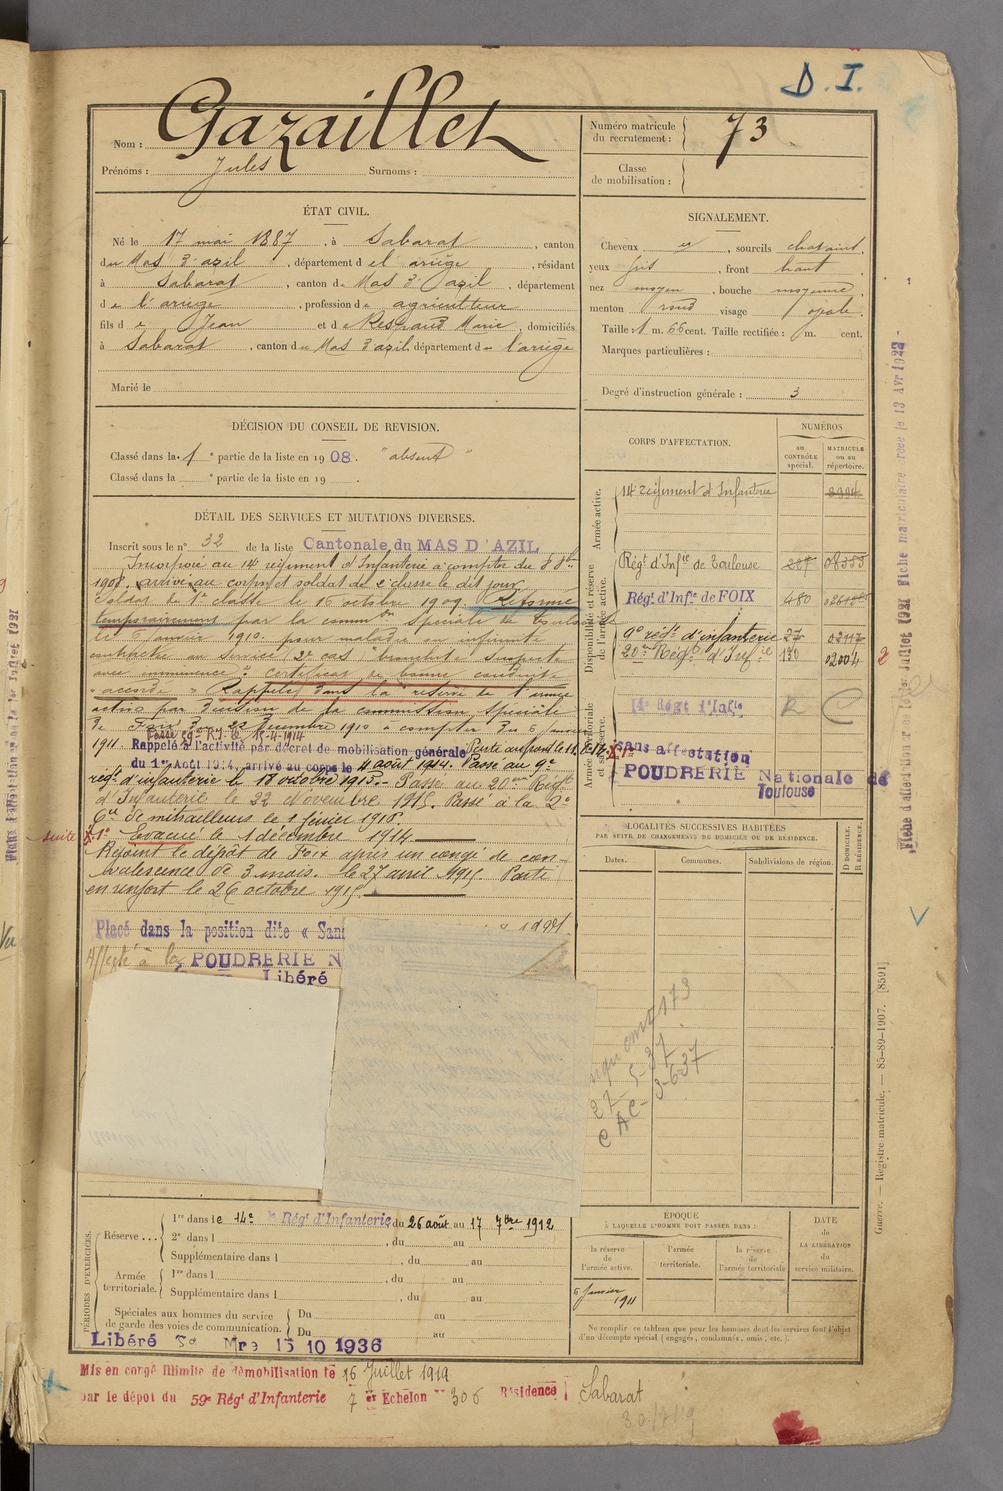 D. I.
Nom : Gazaillet
Prénoms : Jules Surnoms :
Numéro matricule du recrutement : 73
Classe de mobilisation :
ÉTAT CIVIL.
Né le 17 mai 1887, à Sabarat, canton
du Mas d'azil, département de l'ariège, résidant
à Sabarat, canton du Mas d'azil, département
de l'ariège, profession de agriculteur
fils de Jean et de Respaud Marie, domiciliés
à Sabarat, canton du Mas d'azil, département de l'ariège
Marié le
SIGNALEMENT.
Cheveux et, sourcils chatains,
yeux gris, front haut,
nez moyen, bouche moyenne,
menton rond visage ovale.
Taille : 1 m. 66 cent. Taille rectifiée : m. cent.
Marques particulières :
Degré d'instruction générale : 3
DÉCISION DU CONSEIL DE REVISION.
Classé dans la 1e partie de la liste en 1908. "absent"
Classé dans la e partie de la liste en 19 .
DÉTAIL DES SERVICES ET MUTATIONS DIVERSES.
Inscrit sous le n° 32 de la liste Cantonale du MAS D'AZIL
Incorporé au 14e régiment d'Infanterie à compter du 8 8bre
1908, arrivé au corps et soldat de 2e classe le dit jour
Soldat de 1re classe le 16 octobre 1909. Réformé
temporairement par la common Spéciale de Toulouse
le 6 janvier 1910 pour maladie ou infirmité
contractée au service (2e cas) "bronchite suspecte
avec emmence". certificat de bonne conduite
"accordé" Rappelé dans la réserve de l'armée
active par décision de la commission Spéciale
de Foix du 22 décembre 1910 à compter du 6 Janvier
1911. Passé sgt R.I. le 15-4-1914
Rappelé à l'activité par décret de mobilisation générale
du 1er Août 1914, arrivé au corps le 4 août 1914. Passé au 9e
régt d'infanterie le 18 octobre 1915. Passé au 20eme Régt
d'Infanterie le 22 Novembre 1915. Passé à la 2e
Cie de mitrailleurs le 1 février 1916.
suite X 1° Evacué le 1 décembre 1914.
Rejoint le dépôt de Foix après un congé de con-
valescence de 3 mois. le 27 avril 1915 Parti
en renfort le 26 octobre 1915
Placé dans la position dite « Sans
Affecté à la POUDRERIE N
Libéré
CORPS D'AFFECTATION.
NUMÉROS
AU CONTRÔLE spécial.
MATRICULE ou au répertoire.
Armée active.
14e régiment d'Infanterie 8994
Disponibilité et réserve de l'armée active.
Régt d'Infie de Toulouse 287 08355
Régt d'Infie de FOIX 480
9e régt d'infanterie 27 02117
20me Régt d'Infie 130 02004 2
Armée territoriale et sa réserve.
14e Régt d'Infie R C
sans affectation
POUDRERIE Nationale de
Toulouse
LOCALITÉS SUCCESSIVES HABITÉES
PAR SUITE DE CHANGEMENTS DE DOMICILE OU DE RÉSIDENCE.
Dates. Communes. Subdivisions de région.
D DOMICILE. R RÉSIDENCE.
27-5-37
CAC - 3-6-37
PÉRIODES D'EXERCICES.
Réserve ... 1re dans le 14e Régt d'Infanterie du 26 août au 17 7bre 1912
2e dans l , du au
Supplémentaire dans l , du au
Armée territoriale. 1re dans l , du au
Supplémentaire dans l , du au
Spéciales aux hommes du service de garde des voies de communication. Du au
Du au
ÉPOQUE
À LAQUELLE L'HOMME DOIT PASSER DANS :
la réserve de l'armée active.
l'armée territoriale.
la réserve de l'armée territoriale
DATE de LA LIBÉRATION du service militaire.
6 Janvier 1911
Ne remplir ce tableau que pour les hommes dont les services font l'objet
d'un décompte spécial (engagés, condamnés, omis, etc.).
Libéré 15 10 1936
Mis en congé illimité de démobilisation le 16 Juillet 1919
par le dépôt du 59e Régt d'Infanterie 7 er Echelon n° 306 Résidence Sabarat
30/7/19
Fiche matriculaire créée le 13 Avr 1923
Fiche d'affectation au 1er Juillet 1921
Guerre. — Registre matricule. — 85-89-1907. [8591]